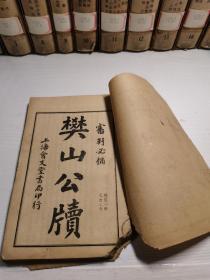 審判必備
樊山公牘
上海會文堂書局印行